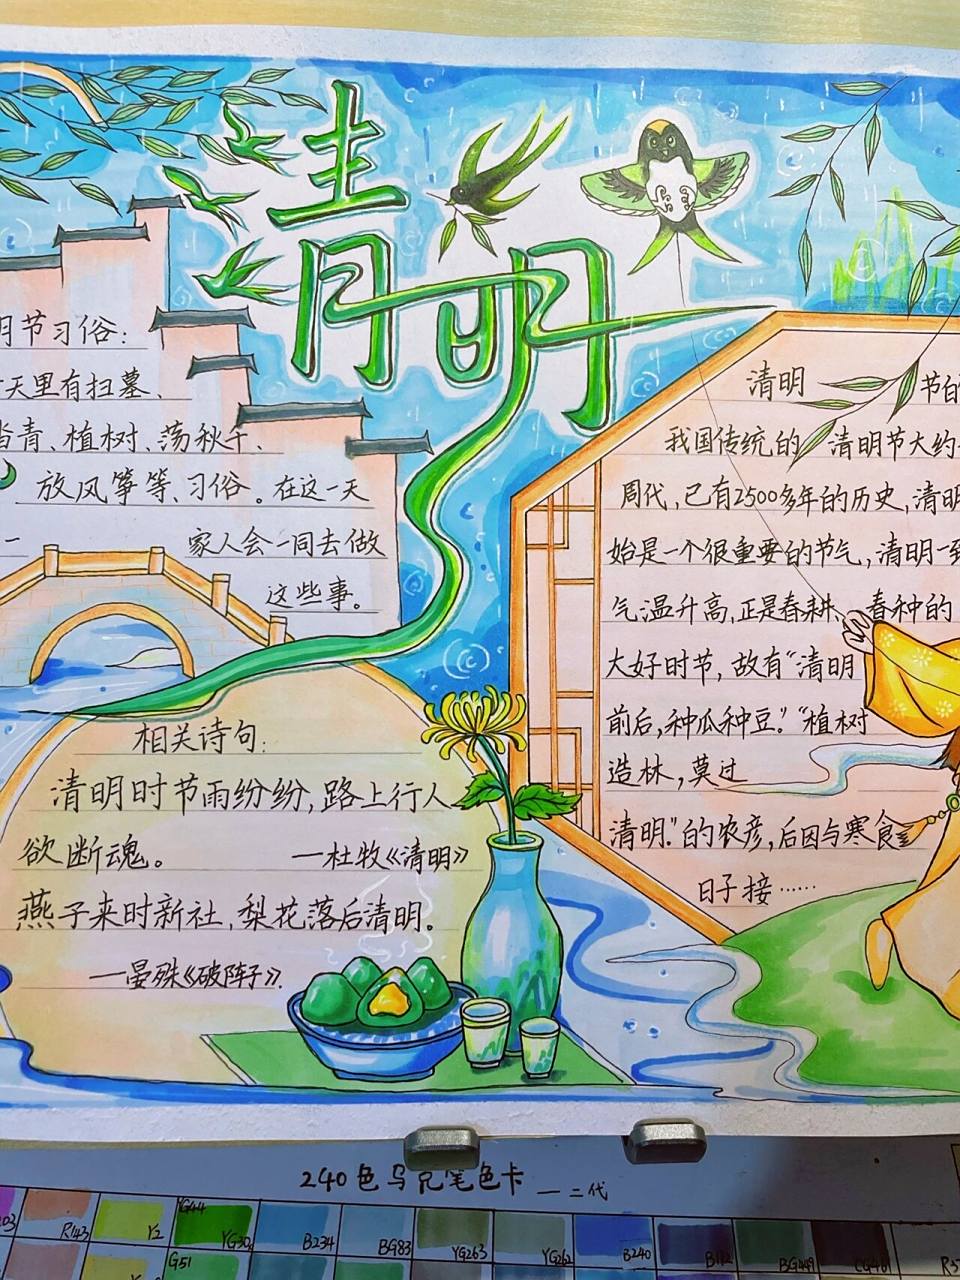 清明
月节习俗：
天里有扫墓、
青、植树、荡秋千、
放风筝等、习俗。在这一天
家人会一同去做
这些事。
相关诗句：
清明时节雨纷纷，路上行人
欲断魂。
—杜牧《清明》
燕子来时新社，梨花落后清明。
—晏殊《破阵子》.
清明 节
我国传统的 清明节大约
周代，已有2500多年的历史，清明
始是一个很重要的节气，清明一
气温升高，正是春耕、春种的
大好时节，故有“清明
前后，种瓜种豆。”“植树
造林，莫过
清明.”的农彦，后因与寒食
日子接……
240色马克笔色卡—二代
R143 Y2 YG44 YG30 B234 BG83 YG263 YG262 B240
G51